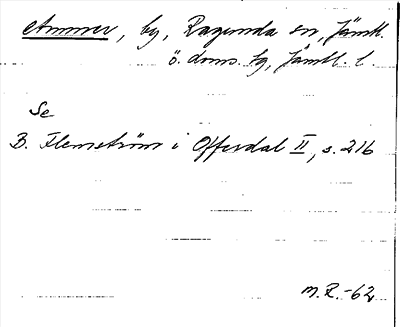 Ammer, by, Ragunda sn, Jämtl.
ö. doms. sg, Jämtl. l.
Se
B. Flemström i Offerdal II, s. 216
M.R.-62